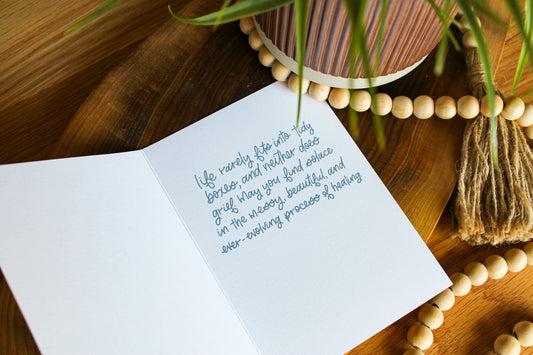 life rarely fits into tidy
boxes, and neither does
grief. may you find solace
in the messy, beautiful, and
ever-evolving process of healing